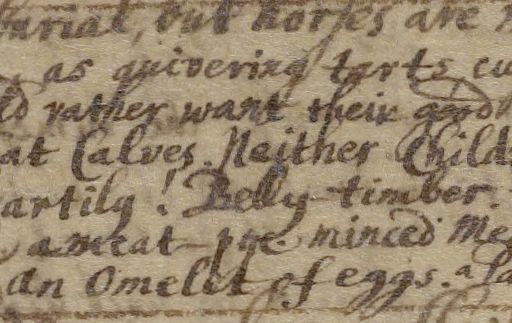 burial, but horses are
as quivering tarts, cu
ld rather want their good
at Calves. Neither Child
artily! Belly-timber.
a meat-pye. minced Me
an Omelet of eggs. a